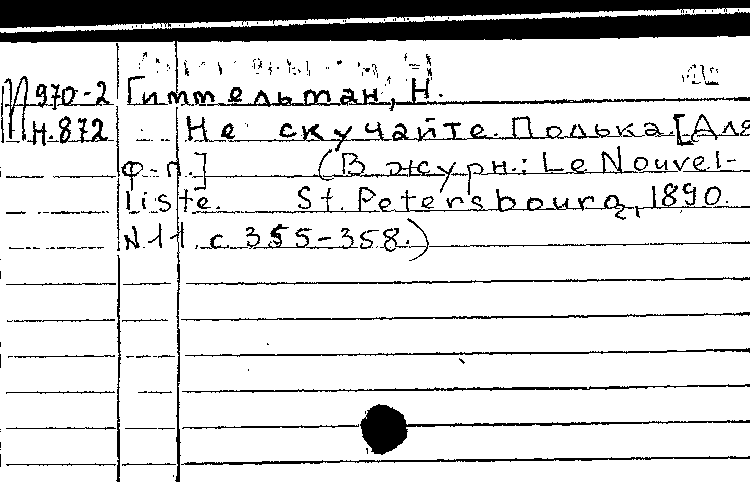 М970-2 Гиттельман, Н.
Н.872 Не скучайте. Полька. [Для
ф-п.] (В журн.: Le Nouvel-
liste. St. Petersbourg, 1890.
N11. с. 355-358.)